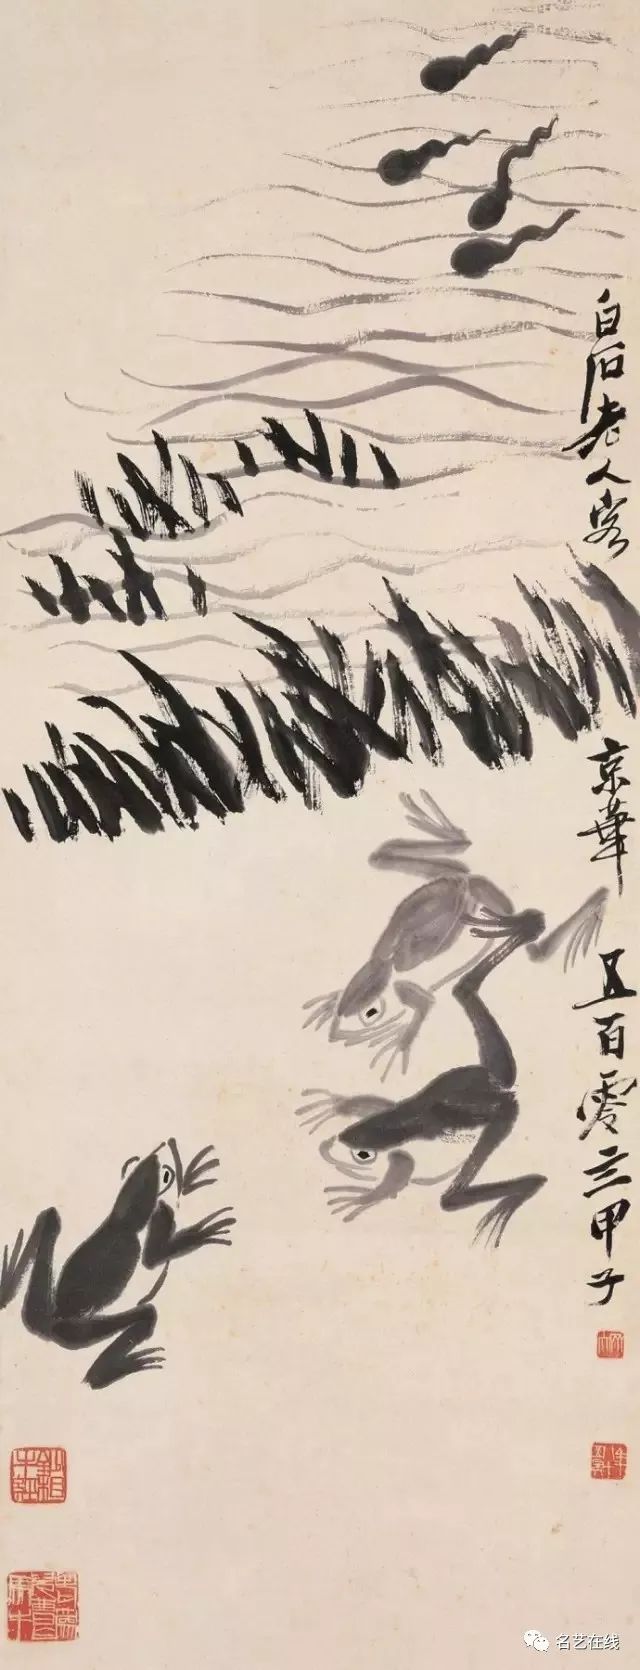 白石老人客京華五百零三甲子
名艺在线